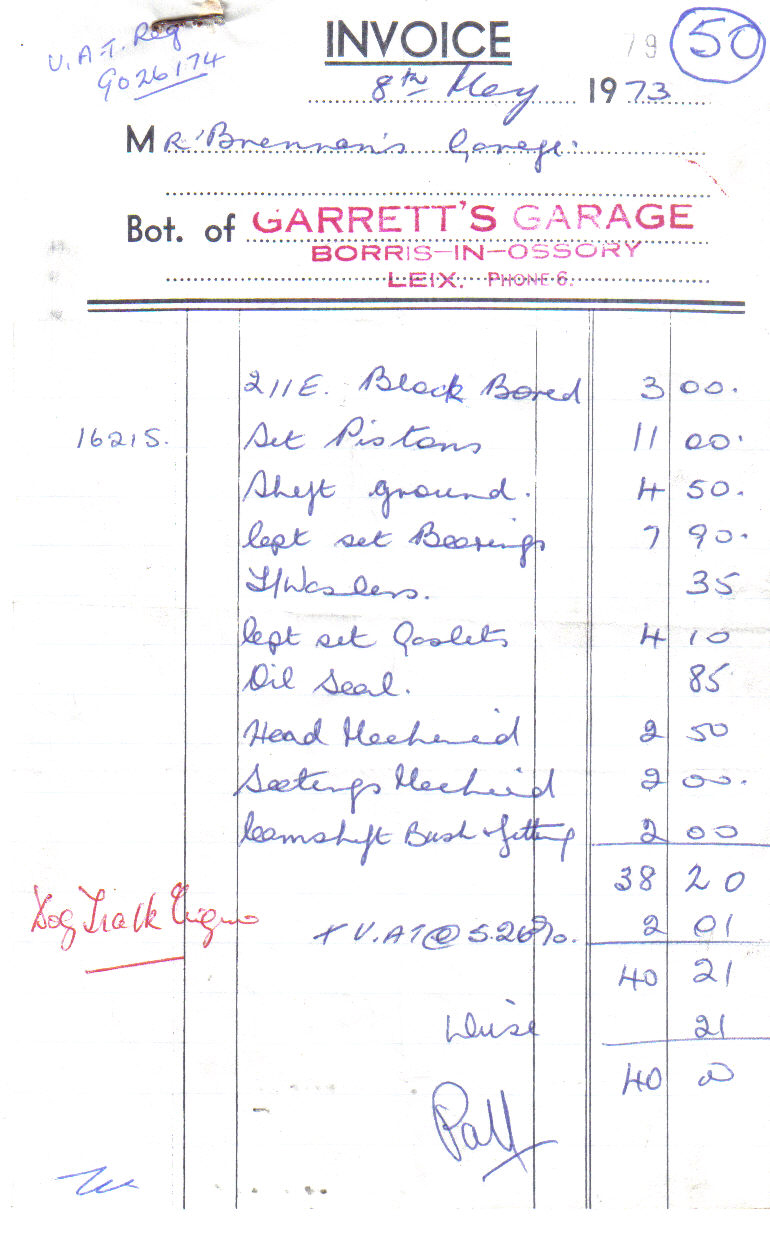 V.A.T. Reg
9026174
INVOICE
79
50
8th May 1973
MR Brennan's Garage.
Bot. of GARRETT'S GARAGE
BORRIS-IN-OSSORY
LEIX. PHONE 6.
211E. Block Bored 3 00.
1621S. Set Pistons 11 00.
Shaft ground. 4 50.
lept set Bearings 7 90.
T/Washers. 35
lept set Gaskets 4 10
Oil Seal. 85
Head Mechenid 2 50
Seetings Mechenid 2 00.
Camshaft Bush & fitting 2 00
38 20
Dog Track Engine + V.A.T @ 5.26%. 2 01
40 21
21
40 00